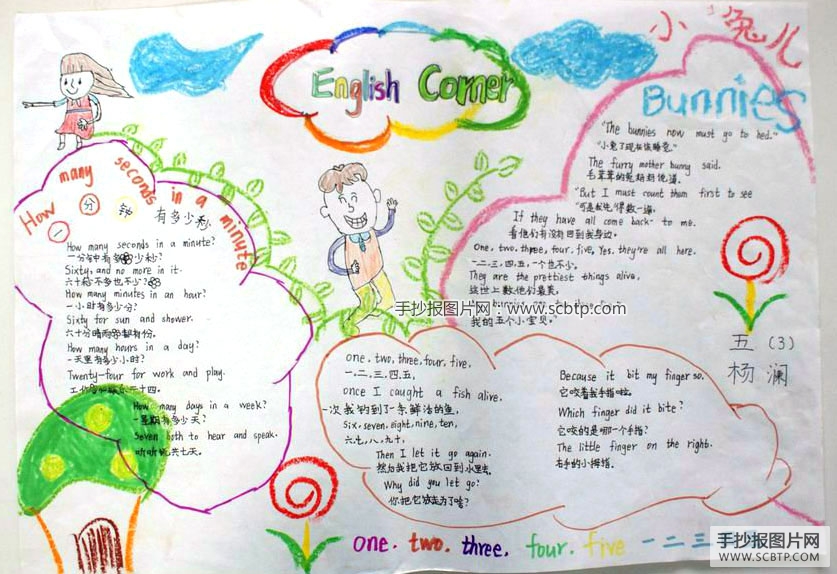 English Corner
How many seconds in a minute
一分钟
有多少秒
How many seconds in a minute?
一分钟有多少秒?
Sixty, and no more in it.
六十秒不多也不少?
How many minutes in an hour?
一小时有多少分?
Sixty for sun and shower.
六十分晴雨路都有份.
How many hours in a day?
一天里有多少小时?
Twenty-four for work and play.
二十四.
How many days in a week?
一星期有多少天?
Seven both to hear and speak.
听听说说共七天.
小小兔儿
Bunnies
"The bunnies now must go to bed."
"小兔子现在该睡觉."
The furry mother bunny said.
毛茸茸的兔妈妈说道.
"But I must count them first to see
"可是我先得数一遍,
If they have all come back to me.
看他们有没有回到我身边.
One, two, three, four, five, Yes, they're all here.
一.二.三.四.五,一个也不少.
They are the prettiest things alive,
这世上数他们最美.
我的五个小宝贝."
手抄报图片网:www.scbtp.com
五(3)
杨澜
one, two, three, four, five,
一.二.三.四.五,
once I caught a fish alive,
一次我钓到了一条鲜活的鱼,
Six, seven, eight, nine, ten,
六.七.八.九.十,
Then I let it go again.
然后我把它放回到水里去.
Why did you let go?
你把它放走为了啥?
Because it bit my finger so.
它咬着我手指啦.
Which finger did it bite?
它咬的是哪一个手指?
The little finger on the right.
右手的小拇指.
one. two. three. four. five 一二三
手抄报图片网
WWW.SCBTP.COM